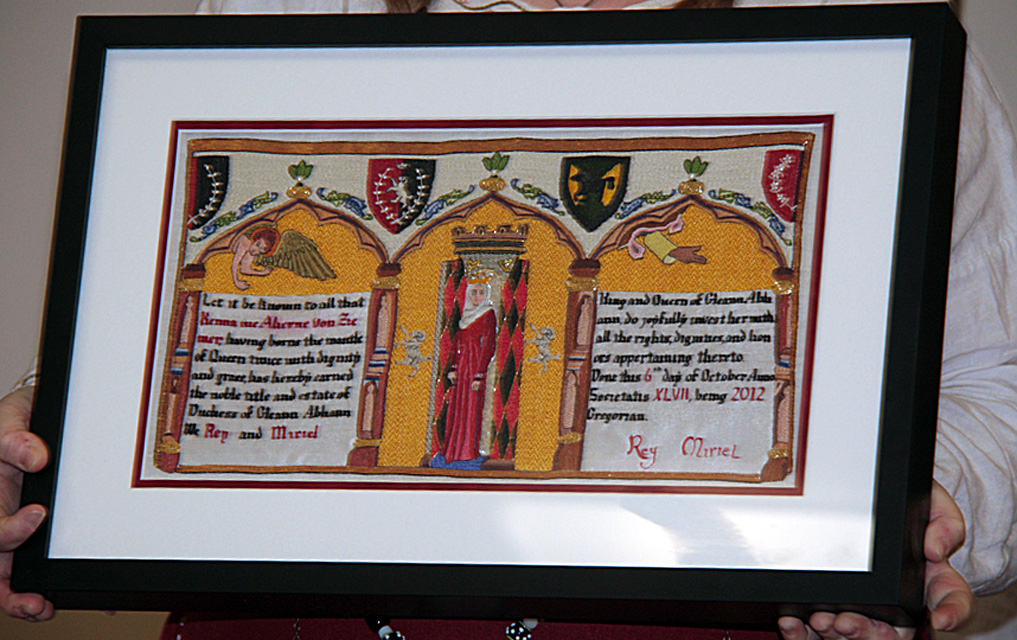 Let it be known to all that
Kenna nic Aherne Von Zie
mer, having borne the mantle
of Queen twice with dignity
and grace, has hereby earned
the noble title and estate of
Duchess of Gleann Abhann
We Rey and Miriel
King and Queen of Gleann Abh
ann, do joyfully invest her with
all the rights, dignities, and hon
ors appertaining thereto.
Done this 6th day of October Anno
Societatis XLVII, being 2012
Gregorian.
Rey Miriel